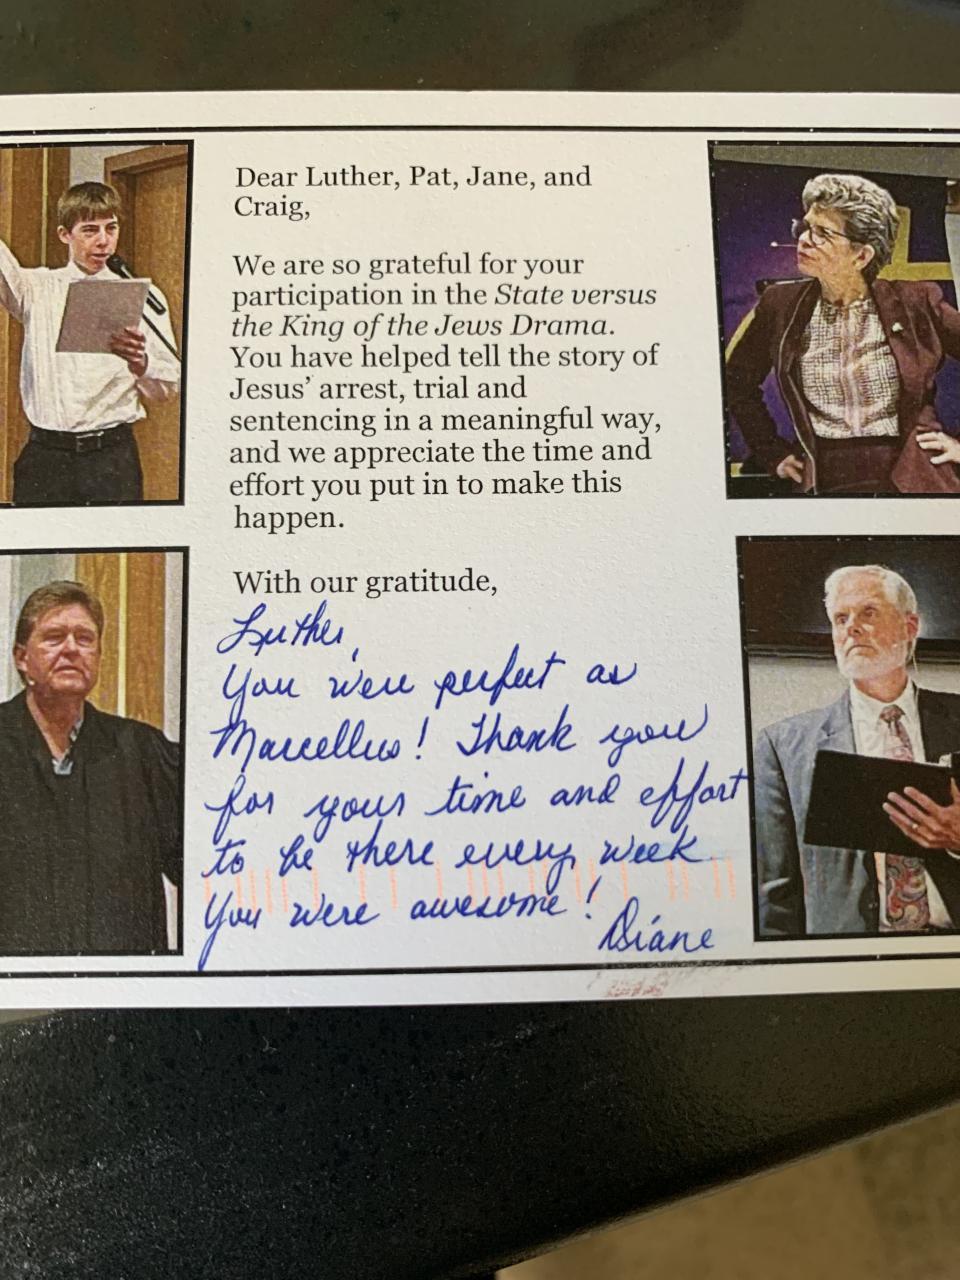 Dear Luther, Pat, Jane, and
Craig,
We are so grateful for your
participation in the State versus
the King of the Jews Drama.
You have helped tell the story of
Jesus' arrest, trial and
sentencing in a meaningful way,
and we appreciate the time and
effort you put in to make this
happen.
With our gratitude,
Luther,
You were perfect as
Marcellus! Thank you
for your time and effort
to be there every week
You were awesome!
Diane